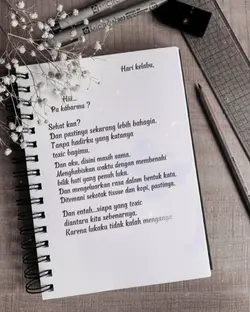 Hari kelabu,
Hai...
Pa kabarmu ?
Sehat kan?
Dan pastinya sekarang lebih bahagia,
Tanpa hadirku yang katanya
toxic bagimu.
Dan aku, disini masih sama.
Menghabiskan waktu dengan membenahi
bilik hati yang penuh luka.
Dan mengeluarkan rasa dalam bentuk kata.
Ditemani sekotak tissue dan kopi, pastinya.
Dan entah...siapa yang toxic
diantara kita sebenarnya,
Karena lukaku tidak kalah menganga.